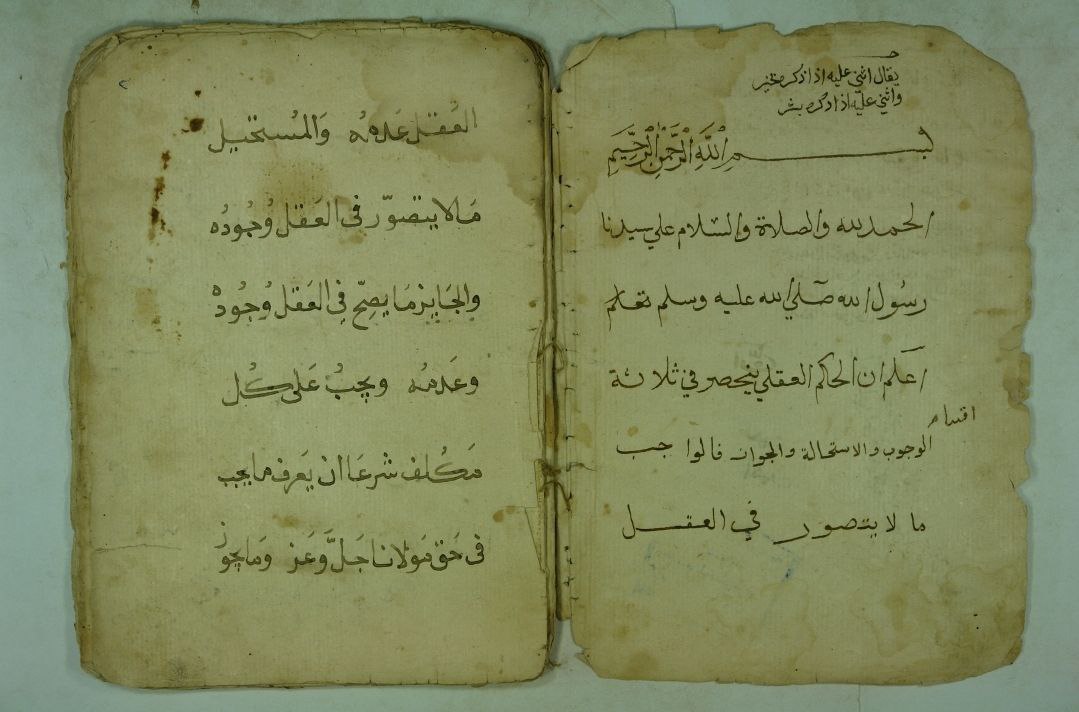 يقال اثني عليه اذا ذكره بخير
واثني عليه اذا ذكره بشر
بسم اللَّهِ الرَّحْمنِ الرَّحِيمِ
الحمد لله والصلاة والسّلام علي سيدنا
رسُول الله صَلي الله عليه وسلم تعالم
اعلم ان الحاكم العقلي ينحصر في ثلاثة
اقسام
الوجوب والاستحالة والجواز فالواجب
ما لا يتصور في العقل
العُقل عَدمُه وَالمُستحيل
مَالا يتصوّر فى العَقل وُجُودُه
والجَايز مَا يصحّ فِي العَقل وُجُودهْ
وعَدمُه ويجبُ عَلى كُل
مَكُلف شرعَا ان يَعرف مايجب
فى حَق مَولانا جَلَّ وَعَز وَمَا يجُوزُ